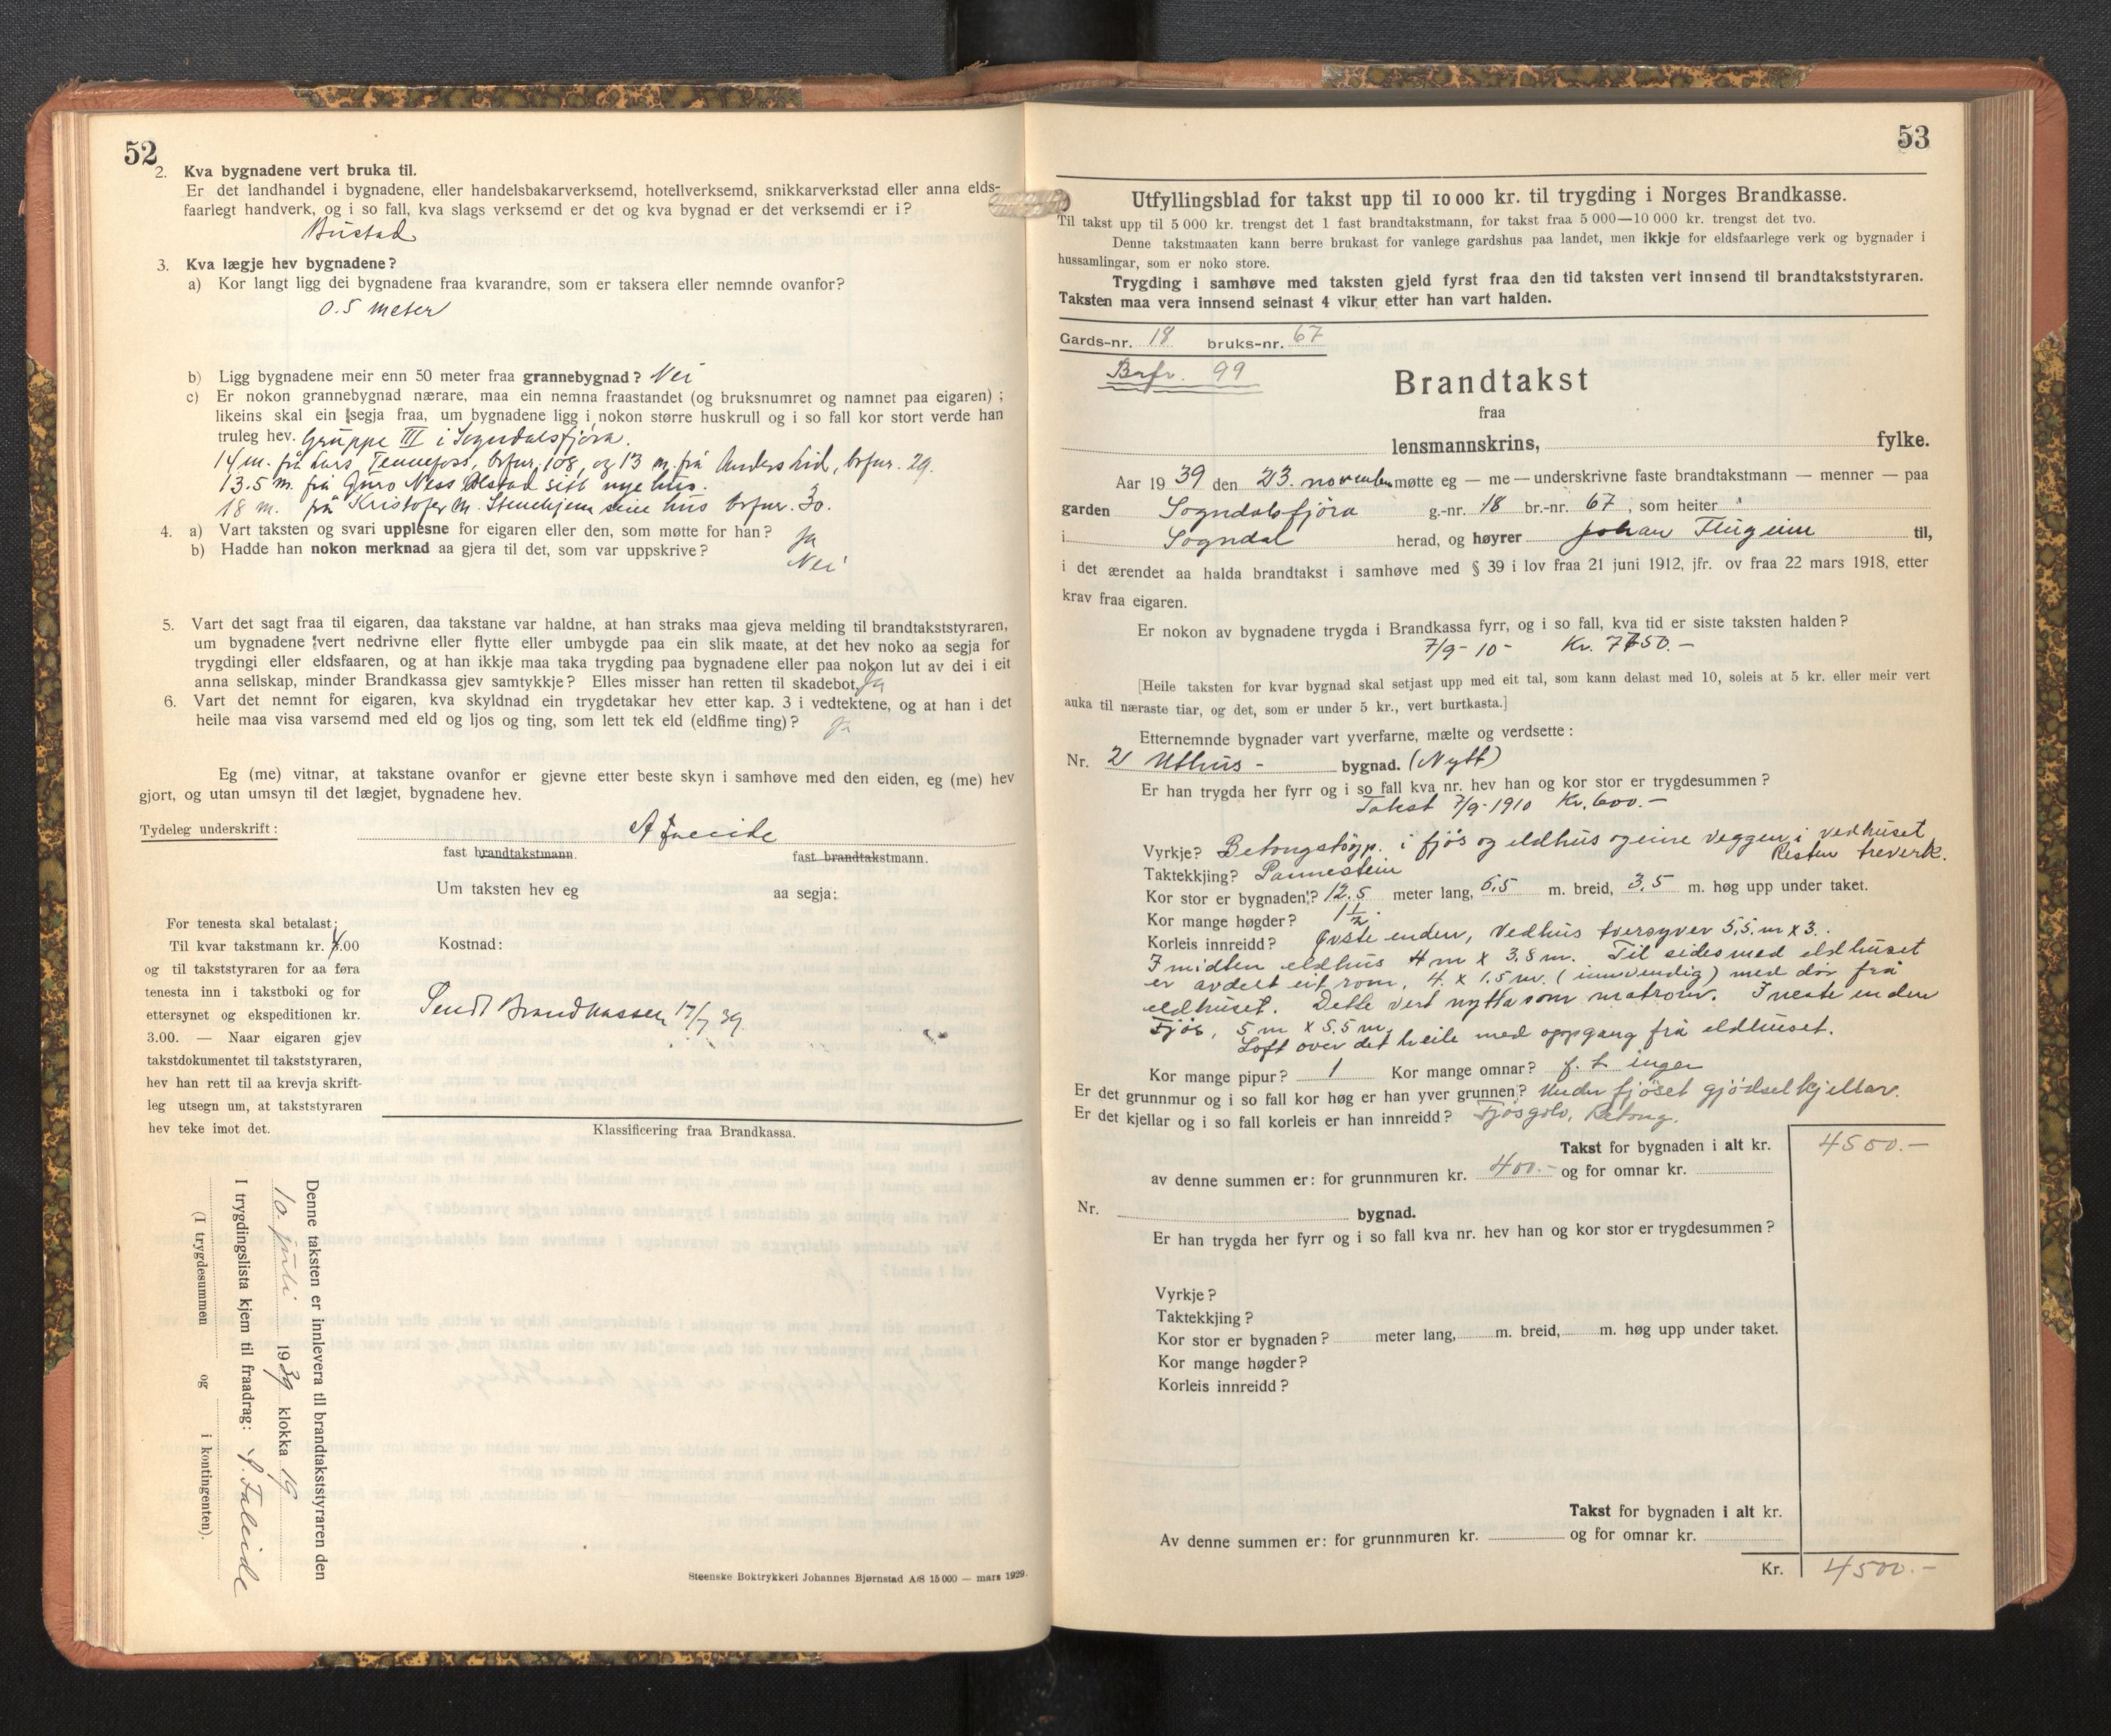 52
2. Kva bygnadene vert bruka til.
Er det landhandel i bygnadene, eller handelsbakarverksemd, hotellverksemd, snikkarverkstad eller anna elds-
faarlegt handverk, og i so fall, kva slags verksemd er det og kva bygnad er det verksemdi er i?
Bustad
3. Kva lægje hev bygnadene?
a) Kor langt ligg dei bygnadene fraa kvarandre, som er taksera eller nemnde ovanfor?
0.5 meter
b) Ligg bygnadene meir enn 50 meter fraa grannebygnad? Nei
c) Er nokon grannebygnad nærare, maa ein nemna fraastandet (og bruksnumret og namnet paa eigaren);
likeins skal ein segja fraa, um bygnadene ligg i nokon større huskrull og i so fall kor stort verde han
truleg hev. Gruppe III i Sogndalsfjøra.
14 m. frå Lars Tennefoss, brfnr. 108, og 13 m. frå Anders Lid, brfnr. 29.
13.5 m. frå Guro Ness Ølstad sitt nye hus.
18 m. frå Kristofer M. Stenehjem sine hus brfnr. 30.
4. a) Vart taksten og svari upplesne for eigaren eller den, som møtte for han? Ja
b) Hadde han nokon merknad aa gjera til det, som var uppskrive? Nei
5. Vart det sagt fraa til eigaren, daa takstane var haldne, at han straks maa gjeva melding til brandtakststyraren,
um bygnadene vert nedrivne eller flytte eller umbygde paa ein slik maate, at det hev noko aa segja for
trygdingi eller eldsfaaren, og at han ikkje maa taka trygding paa bygnadene eller paa nokon lut av dei i eit
anna sellskap, minder Brandkassa gjev samtykkje? Elles misser han retten til skadebot. Ja
6. Vart det nemnt for eigaren, kva skyldnad ein trygdetakar hev etter kap. 3 i vedtektene, og at han i det
heile maa visa varsemd med eld og ljos og ting, som lett tek eld (eldfime ting)? ja
Eg (me) vitnar, at takstane ovanfor er gjevne etter beste skyn i samhøve med den eiden, eg (me) hev
gjort, og utan umsyn til det lægjet, bygnadene hev.
Tydeleg underskrift: A Faleide
fast brandtakstmann. fast brandtakstmann.
Um taksten hev eg aa segja:
For tenesta skal betalast:
Til kvar takstmann kr. 4.00
og til takststyraren for aa føra
tenesta inn i takstboki og for
ettersynet og ekspeditionen kr.
3.00. — Naar eigaren gjev
takstdokumentet til takststyraren,
hev han rett til aa krevja skrift-
leg utsegn um, at takststyraren
hev teke imot det.
Kostnad:
Sendt Brandkassen 17/7 39.
Klassificering fraa Brandkassa.
Denne taksten er innlevera til brandtakststyraren den
10. juli 1939 klokka 19
I trygdingslista kjem til fraadrag: A. Faleide
(I trygdesummen og i kontingenten).
Steenske Boktrykkeri Johannes Bjørnstad A/S 15 000 — mars 1929.
53
Utfyllingsblad for takst upp til 10 000 kr. til trygding i Norges Brandkasse.
Til takst upp til 5 000 kr. trengst det 1 fast brandtakstmann, for takst fraa 5 000—10 000 kr. trengst det tvo.
Denne takstmaaten kann berre brukast for vanlege gardshus paa landet, men ikkje for eldsfaarlege verk og bygnader i
hussamlingar, som er noko store.
Trygding i samhøve med taksten gjeld fyrst fraa den tid taksten vert innsend til brandtakststyraren.
Taksten maa vera innsend seinast 4 vikur etter han vart halden.
Gards-nr. 18 bruks-nr. 67
Brfr. 99
Brandtakst
fraa
lensmannskrins, fylke.
Aar 1939 den 23. november møtte eg — me — underskrivne faste brandtakstmann — menner — paa
garden Sogndalsfjöra g.-nr. 18 br.-nr. 67, som heiter "
i Sogndal herad, og høyrer Johan Flugeim til,
i det ærendet aa halda brandtakst i samhøve med § 39 i lov fraa 21 juni 1912, jfr. ov fraa 22 mars 1918, etter
krav fraa eigaren.
Er nokon av bygnadene trygda i Brandkassa fyrr, og i so fall, kva tid er siste taksten halden?
7/9-10- Kr. 7750.-
[Heile taksten for kvar bygnad skal setjast upp med eit tal, som kann delast med 10, soleis at 5 kr. eller meir vert
auka til næraste tiar, og det, som er under 5 kr., vert burtkasta.]
Etternemnde bygnader vart yverfarne, mælte og verdsette:
Nr. 2 Uthus - bygnad. (Nytt)
Er han trygda her fyrr og i so fall kva nr. hev han og kor stor er trygdesummen?
Takst 7/9-1910 Kr. 600.-
Vyrkje? Betongstöyp. i fjös og eldhus og eine veggen i vedhuset
Resten treverk.
Taktekkjing? Pannestein
Kor stor er bygnaden? 12.5 meter lang, 6,5 m. breid, 3,5 m. høg upp under taket.
Kor mange høgder? 1½.
Korleis innreidd? Øvste enden, Vedhus tversyver 5,5 m x 3.
I midten eldhus 4 m x 3.8 m. Til sides med eldhuset
er avdelt eit rom, 4. x 1.5 m. (innvendig) med dør frå
eldhuset. Dette vert nytta som matrom. I neste enden
Fjös, 5 m x 5.5 m.
Loft over det heile med oppgang frå eldhuset.
Kor mange pipur? 1 Kor mange omnar? f. t. ingen
Er det grunnmur og i so fall kor høg er han yver grunnen? Under fjöset gjödselkjellar.
Er det kjellar og i so fall korleis er han innreidd? Fjösgolv, Betong.
Takst for bygnaden i alt kr. 4500.-
av denne summen er: for grunnmuren kr. 400.- og for omnar kr.
Nr. bygnad.
Er han trygda her fyrr og i so fall kva nr. hev han og kor stor er trygdesummen?
Vyrkje?
Taktekkjing?
Kor stor er bygnaden? meter lang, m. breid, m. høg upp under taket.
Kor mange høgder?
Korleis innreidd?
Takst for bygnaden i alt kr.
Av denne summen er: for grunnmuren kr. og for omnar kr.
Kr. 4500.-